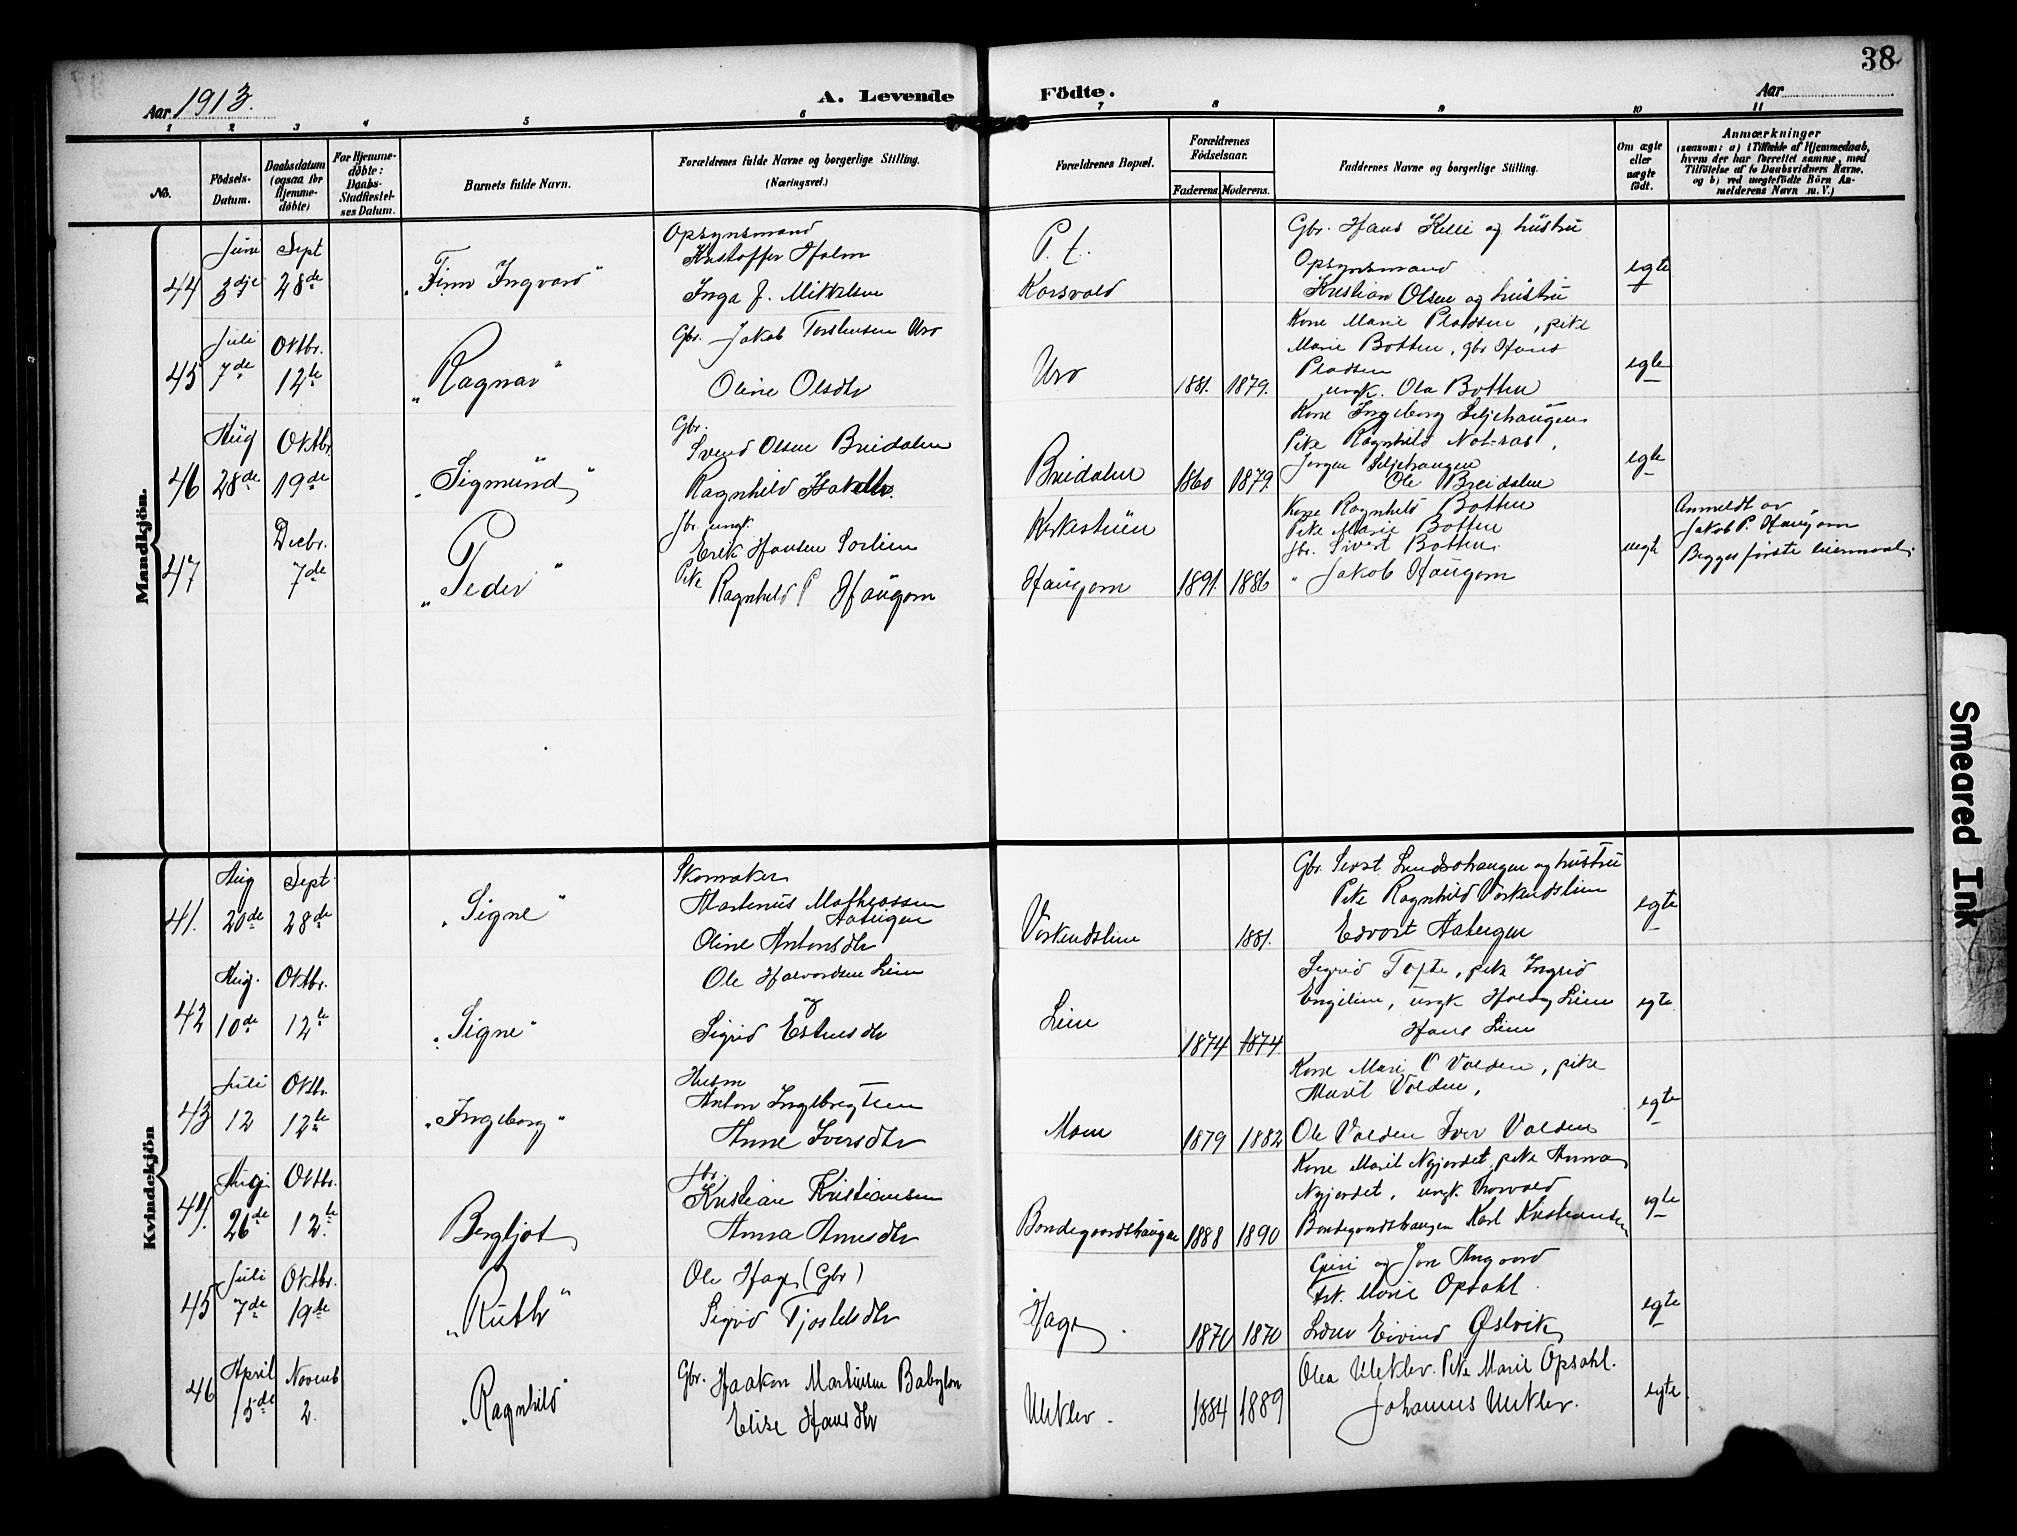 38
Aar 1913.
A. Levende Födte.
Aar
1 2 3 4 5 6 7 8 9 10 11
No.
Födsels-Datum.
Daabsdatum (ogsaa for Hjemme-döbte)
For Hjemme-döbte: Daabs-Stadfæstel-ses Datum.
Barnets fulde Navn.
Forældrenes fulde Navne og borgerlige Stilling. (Næringsvei.)
Forældrenes Bopæl.
Forældrenes Födselsaar.
Faderens. Moderens.
Faddernes Navne og borgerlige Stilling.
Om ægte eller uægte födt.
Anmærkninger
(saasom: a) i Tilfælde af Hjemmedaab,
hvem der har forrettet samme, med
Tilföielse af to Daabsvidners Navne,
og b) ved uegtefödte Börn An-
melderens Navn m. V.)
Mandkjön.
44
Juni 3dje
Sept 28de
"Finn Ingvard"
Opsynsmand
Kristoffer Holm
Inga J. Mikkelsen
P. t.
Korsvold
Gbr. Hans Kelli og hustru
Opsynsmand
Kristian Olsen og hustru
egte
45
Juli 7de
Oktbr. 12te
"Ragnar"
Gbr. Jakob Torstensen Uro
Oline Olsdtr
Uro
1881. 1879.
Kone Marie Pladsen, pike
Marie Botten, gbr Hans
Pladsen
ungk. Ola Botten
egte
46
Aug 28de
Oktbr. 19de
"Sigmund"
Gbr.
Svend Olsen Breidalen
Ragnhild
Breidalen
1860 1879.
Kone Ingeborg Seljehaugen
Pike Ragnhild
Jørgen Seljehaugen
Ole Breidalen
egte
47
Decbr. 7de
"Peder"
ungk.
Erik Hansen
Pike
Ragnhild P Haugom
Kirkestuen
Haugom
1891. 1886
Kone Ragnhild Botten
Pike Marie Botten
Sivert Botten
" Jakob Haugom
uegte
Anmeldt av
Jakob P. Haugom
Begges første leiermaal.
Kvindekjön
41.
Aug 20de
Sept. 28de
"Signe"
Skomaker
Martinus Mathiassen
Oline Antonsdtr
1881.
Pike Ragnhild
Edvart
egte
42
Aug. 10de
Oktbr. 12te
"Signe"
Ole Halvordsen Lien
og
Sigrid Estensdtr
Lien
1874 1874.
Sigrid Tofte, pike Ingrid
Engelien, ungk Lien
Hans Lien
egte
43
Juli 12
Oktbr. 12te
"Ingeborg"
Husm
Anton Ingebrigtsen
Anne Iversdtr
Moen
1879 1882
Kone Mari O Volden, pike
Marit Volden,
Ole Volden Iver Volden
egte
44.
Aug. 26de
Oktbr. 12te
Bergljot
Kristian Kristiansen
Anna Arnesdtr
Bondegaardshaugen
1888 1890
Kone Marit Nyjordet, pike Anna
Nyjordet, ungk. Thorvald
Bondegaardshaugen Karl Kristiansen
egte
45
Juli 7de
Oktbr. 19de
"Ruth"
Ole Hage (Gbr)
Sigrid Tjostelsdtr
Hage.
1870 1870
Guri og Jon Angaard
Frk. Marie Opsahl.
Lærer Eivind Østvik
egte
46
April 15de
Novemb 2.
"Ragnhild"
Gbr. Haakon Martinsen Babylon
Elise Hansdtr
Uleklev.
1884 1889
Olea Uleklev. Pike Marie Opsahl.
Johannes Uleklev.
egte.
Smeared Ink